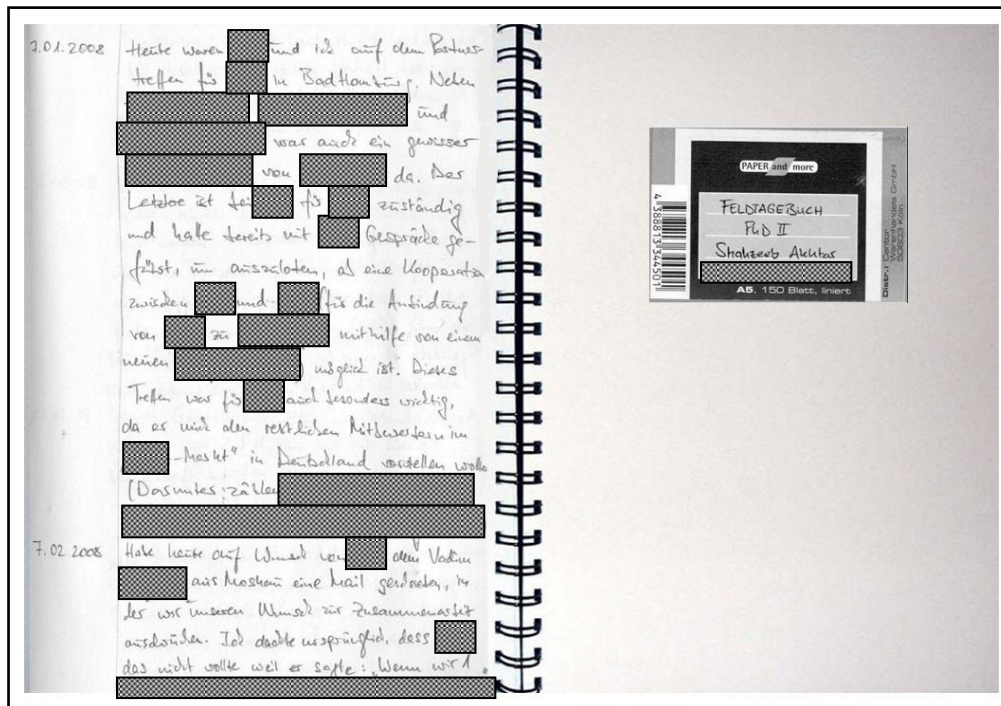 7.01.2008 Heute waren und ich auf dem Partner-
treffen für in Bad Homburg. Neben
und
war auch ein gewisser
von da. Der
Letztere ist bei für zuständig
und hatte bereits mit Gespräche ge-
führt, um auszuloten, ob eine Kooperation
zwischen und für die Anbindung
von zu mithilfe von einem
neuen möglich ist. Dieses
Treffen war für auch besonders wichtig,
da er mich den restlichen Mitbewerbern im
-Markt" in Deutschland vorstellen wollte
(Darunter zählen
7.02 2008 Habe heute auf Wunsch von dem Vadim
aus Moskau eine Mail geschrieben, in
der wir unseren Wunsch zur Zusammenarbeit
ausdrücken. Ich dachte ursprünglich, dass
das nicht wollte weil er sagte: „Wenn wir 1
PAPER and more
FELDTAGEBUCH
PhD II
Shahzeeb Akhtar
A5, 150 Blatt, liniert
4 388813 344501
Distr.: Cantor
Warenhandels GmbH
50603 Köln